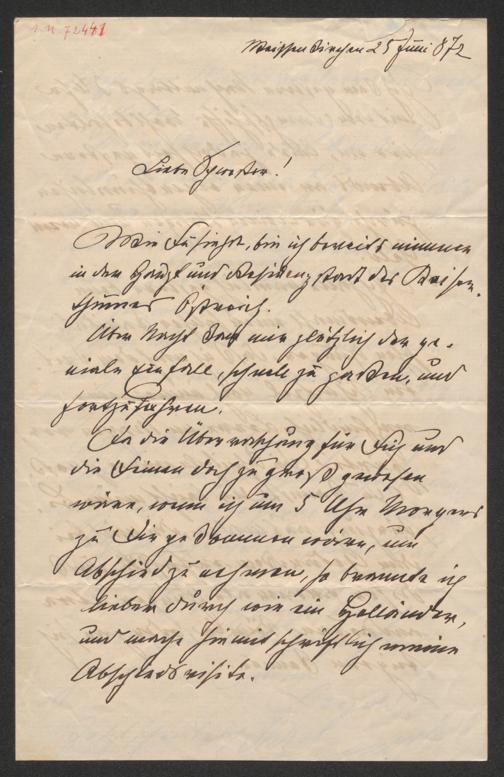 I.N. 72441
Weissenkirchen 25 Juni 872
Liebe Schwester!
Wie Du siehst, bin ich bereits nimmer
in der Haupt und Residenzstadt des Kaiser-
thumes Östreich.
Über Nacht kam mir plötzlich der ge-
niale Einfall, schnell zu packen, und
fortzufahren.
Da die Überraschung für Dich und
die Deinen doch zu groß gewesen
wäre, wenn ich um 5 Uhr Morgens
zu Dir gekommen wäre, um
Abschied zu nehmen, so brannte ich
lieber durch wie ein Holländer,
und mache hiemit schriftlich meine
Abschiedsvisite.